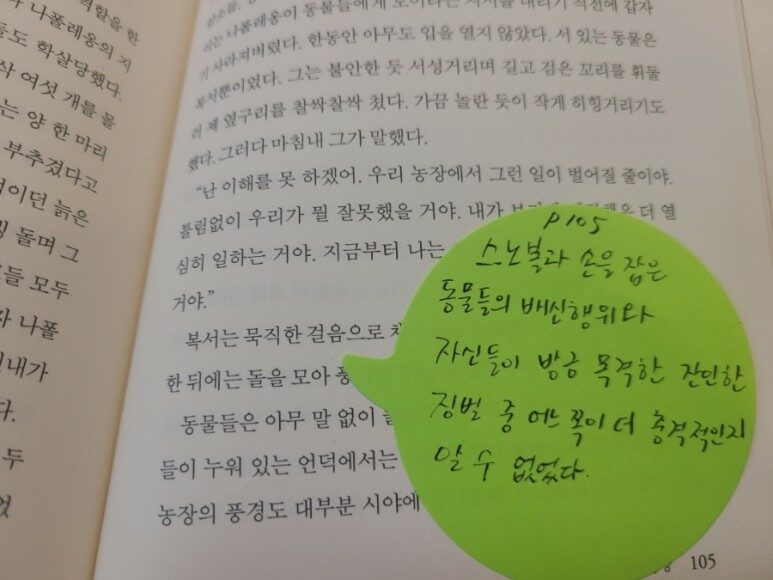 역할을 한
나폴레옹의 지
들도 화살당했다.
여섯 개를 몰
는 양 한 마리
부추겼다고
이던 늙은
돌며 그
들 모두
자 나폴
내가
다.
두
나폴레옹이 동물들에게 모이라는 지시를 내리기 직전에 갑자
사라져버렸다. 한동안 아무도 입을 열지 않았다. 서 있는 동물은
복서뿐이었다. 그는 불안한 듯 서성거리며 길고 검은 꼬리를 휘둘
러 제 옆구리를 찰싹찰싹 쳤다. 가끔 놀란 듯이 작게 히힝거리기도
했다. 그러다 마침내 그가 말했다.
“난 이해를 못 하겠어. 우리 농장에서 그런 일이 벌어질 줄이야.
틀림없이 우리가 뭘 잘못했을 거야. 내가 더 열
심히 일하는 거야. 지금부터 나는
거야.”
복서는 묵직한 걸음으로
한 뒤에는 돌을 모아
동물들은 아무 말 없이
들이 누워 있는 언덕에서는
농장의 풍경도 대부분 시야에
P105
스노볼과 손을 잡은
동물들의 배신행위와
자신들이 방금 목격한 잔인한
징벌 중 어느 쪽이 더 충격적인지
알 수 없었다.
105